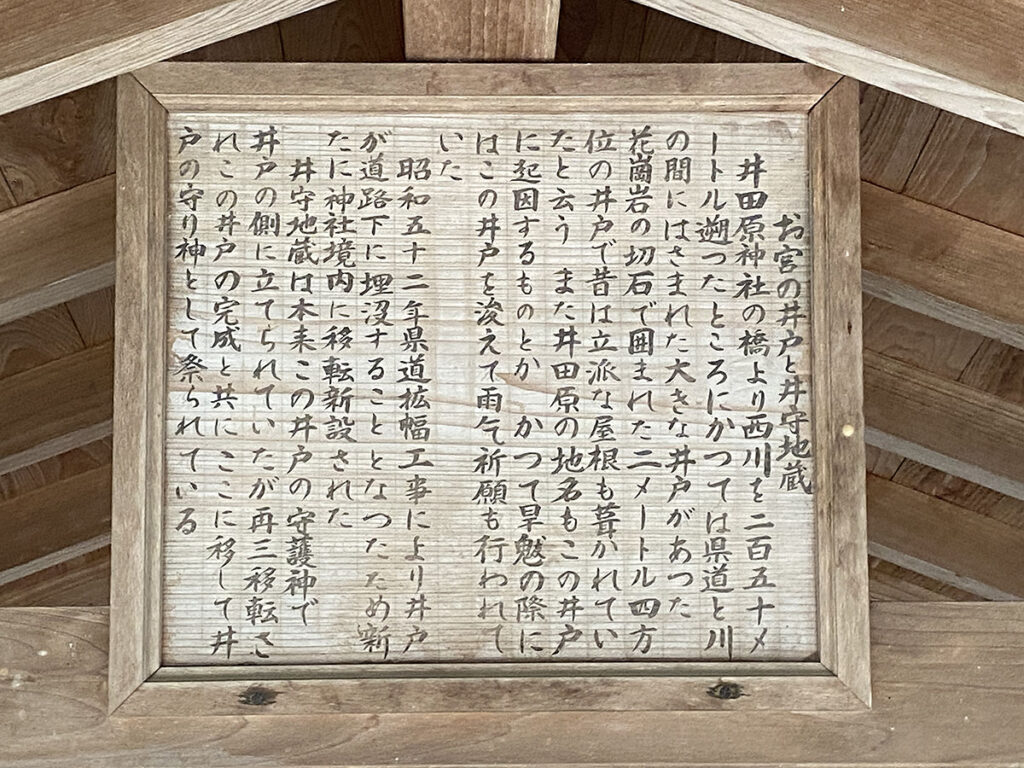 お宮の井戸と井守地蔵
井田原神社の橋より西川を二百五十メ
ートル遡つたところにかつては県道と川
の間にはさまれた大きな井戸があつた
花崗岩の切石で囲まれた二メートル四方
位の井戸で昔は立派な屋根も葺かれてい
たと云う また井田原の地名もこの井戸
に起因するものとか かつて旱魃の際に
はこの井戸を浚えて雨乞祈願も行われて
いた
昭和五十二年県道拡幅工事により井戸
が道路下に埋没することとなつたため新
たに神社境内に移転新設された
井守地蔵は本来この井戸の守護神で
井戸の側に立てられていたが再三移転さ
れこの井戸の完成と共にここに移して井
戸の守り神として祭られている